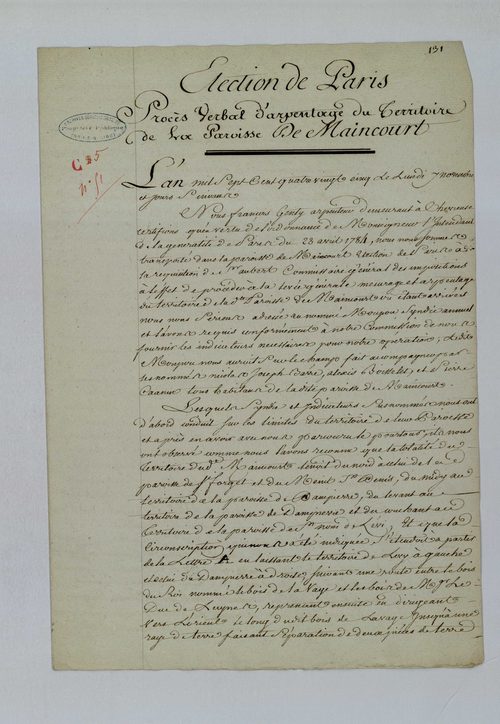 131
Election de Paris
Procès Verbal d'arpentage du Territoire
de La Paroisse De Maincourt
C 25
n° 51
L'An mil Sept Cent quatre vingt cinq Le Lundi 7 novembre
et jours Suivants
Nous françois Genty arpenteur demeurant à Chevreuse
certifions qu'en vertu de l'ordonnance de Monseigneur l'Intendant
de la generalité de Paris du 28 avril 1784, nous nous sommes
transporté dans la paroisse de Maincourt Election de Paris à
la requisition de Commissaire général des impositions
à l'effet de proceder à la levée générale mesurage et arpentage
du territoire de lad. Paroisse de Maincourt où étant arrivés
nous nous Serions adressé au nommé Moujou Syndic annuel
et l'avons requis conformément à notre Commission de nous
fournir les indicateurs necessaires pour notre operation, Ledit
Moujou nous auroit Sur le champ fait accompagner par
les nommés nicolas Joseph Carré, alexis et Pierre
tous habitans de la dite paroisse de Maincourt.
Lesquels Syndic et Indicateurs Susnommés nous ont
d'abord conduit sur les limites du territoire de leur Paroisse
et après en avoir avec nous parcouru le pourtour, ils nous
ont observé comme nous l'avons reconnu que la totalité du
territoire dud. Maincourt tenoit du nord à celui de la
paroisse de St forget et du Menil St Denis, du midy au
territoire de la paroisse de Dampierre, du levant au
territoire de la paroisse de Dampierre et du couchant au
territoire de la paroisse de Levy, Et que la
Circonscription qui nous a été indiquée S'étendoit a partir
de la Lettre A en laissant le territoire de Levy à gauche
et celui de Dampierre à droite, suivant une route entre le bois
du Roi nommé le bois de la Vaye et les bois de M. Le
Duc de Luynes, reprenant ensuite en dirigeant
vers L'orient le long dudit bois de Lavaye jusqu'à une
raye de terre faisant séparation de deux pièces de terre